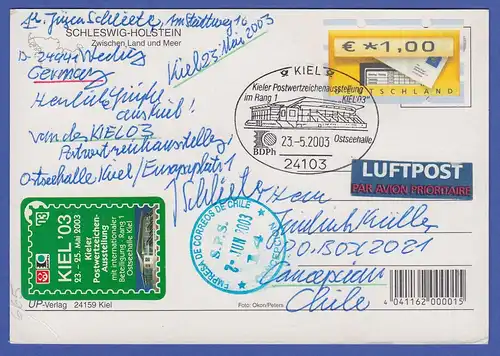 SCHLESWIG-HOLSTEIN
Zwischen Land und Meer
Germany
Kiel 23. Mai 2003
Herzliche Grüße
aus Kiel!
von der KIEL 03
Postwertzeichenausstellung,
Ostseehalle Kiel/Europaplatz 1
€ *1,00
DEUTSCHLAND
KIEL
Kieler Postwertzeichenausstellung
im Rang 1 KIEL'03"
23.-5.2003
Ostseehalle
BDPh
24103
LUFTPOST
PAR AVION PRIORITAIRE
Herrn
P.O. BOX 2021
Concepcion
Chile
EMPRESA DE CORREOS DE CHILE
JUN 2003
14
CONCEPCION
KIEL '03
23. - 25. Mai 2003
Kieler
Postwertzeichen-
Ausstellung
mit internationaler
Beteiligung im Rang 1
Ostseehalle Kiel
UP-Verlag 24159 Kiel
Foto: Okon/Peters
4 041162 000015